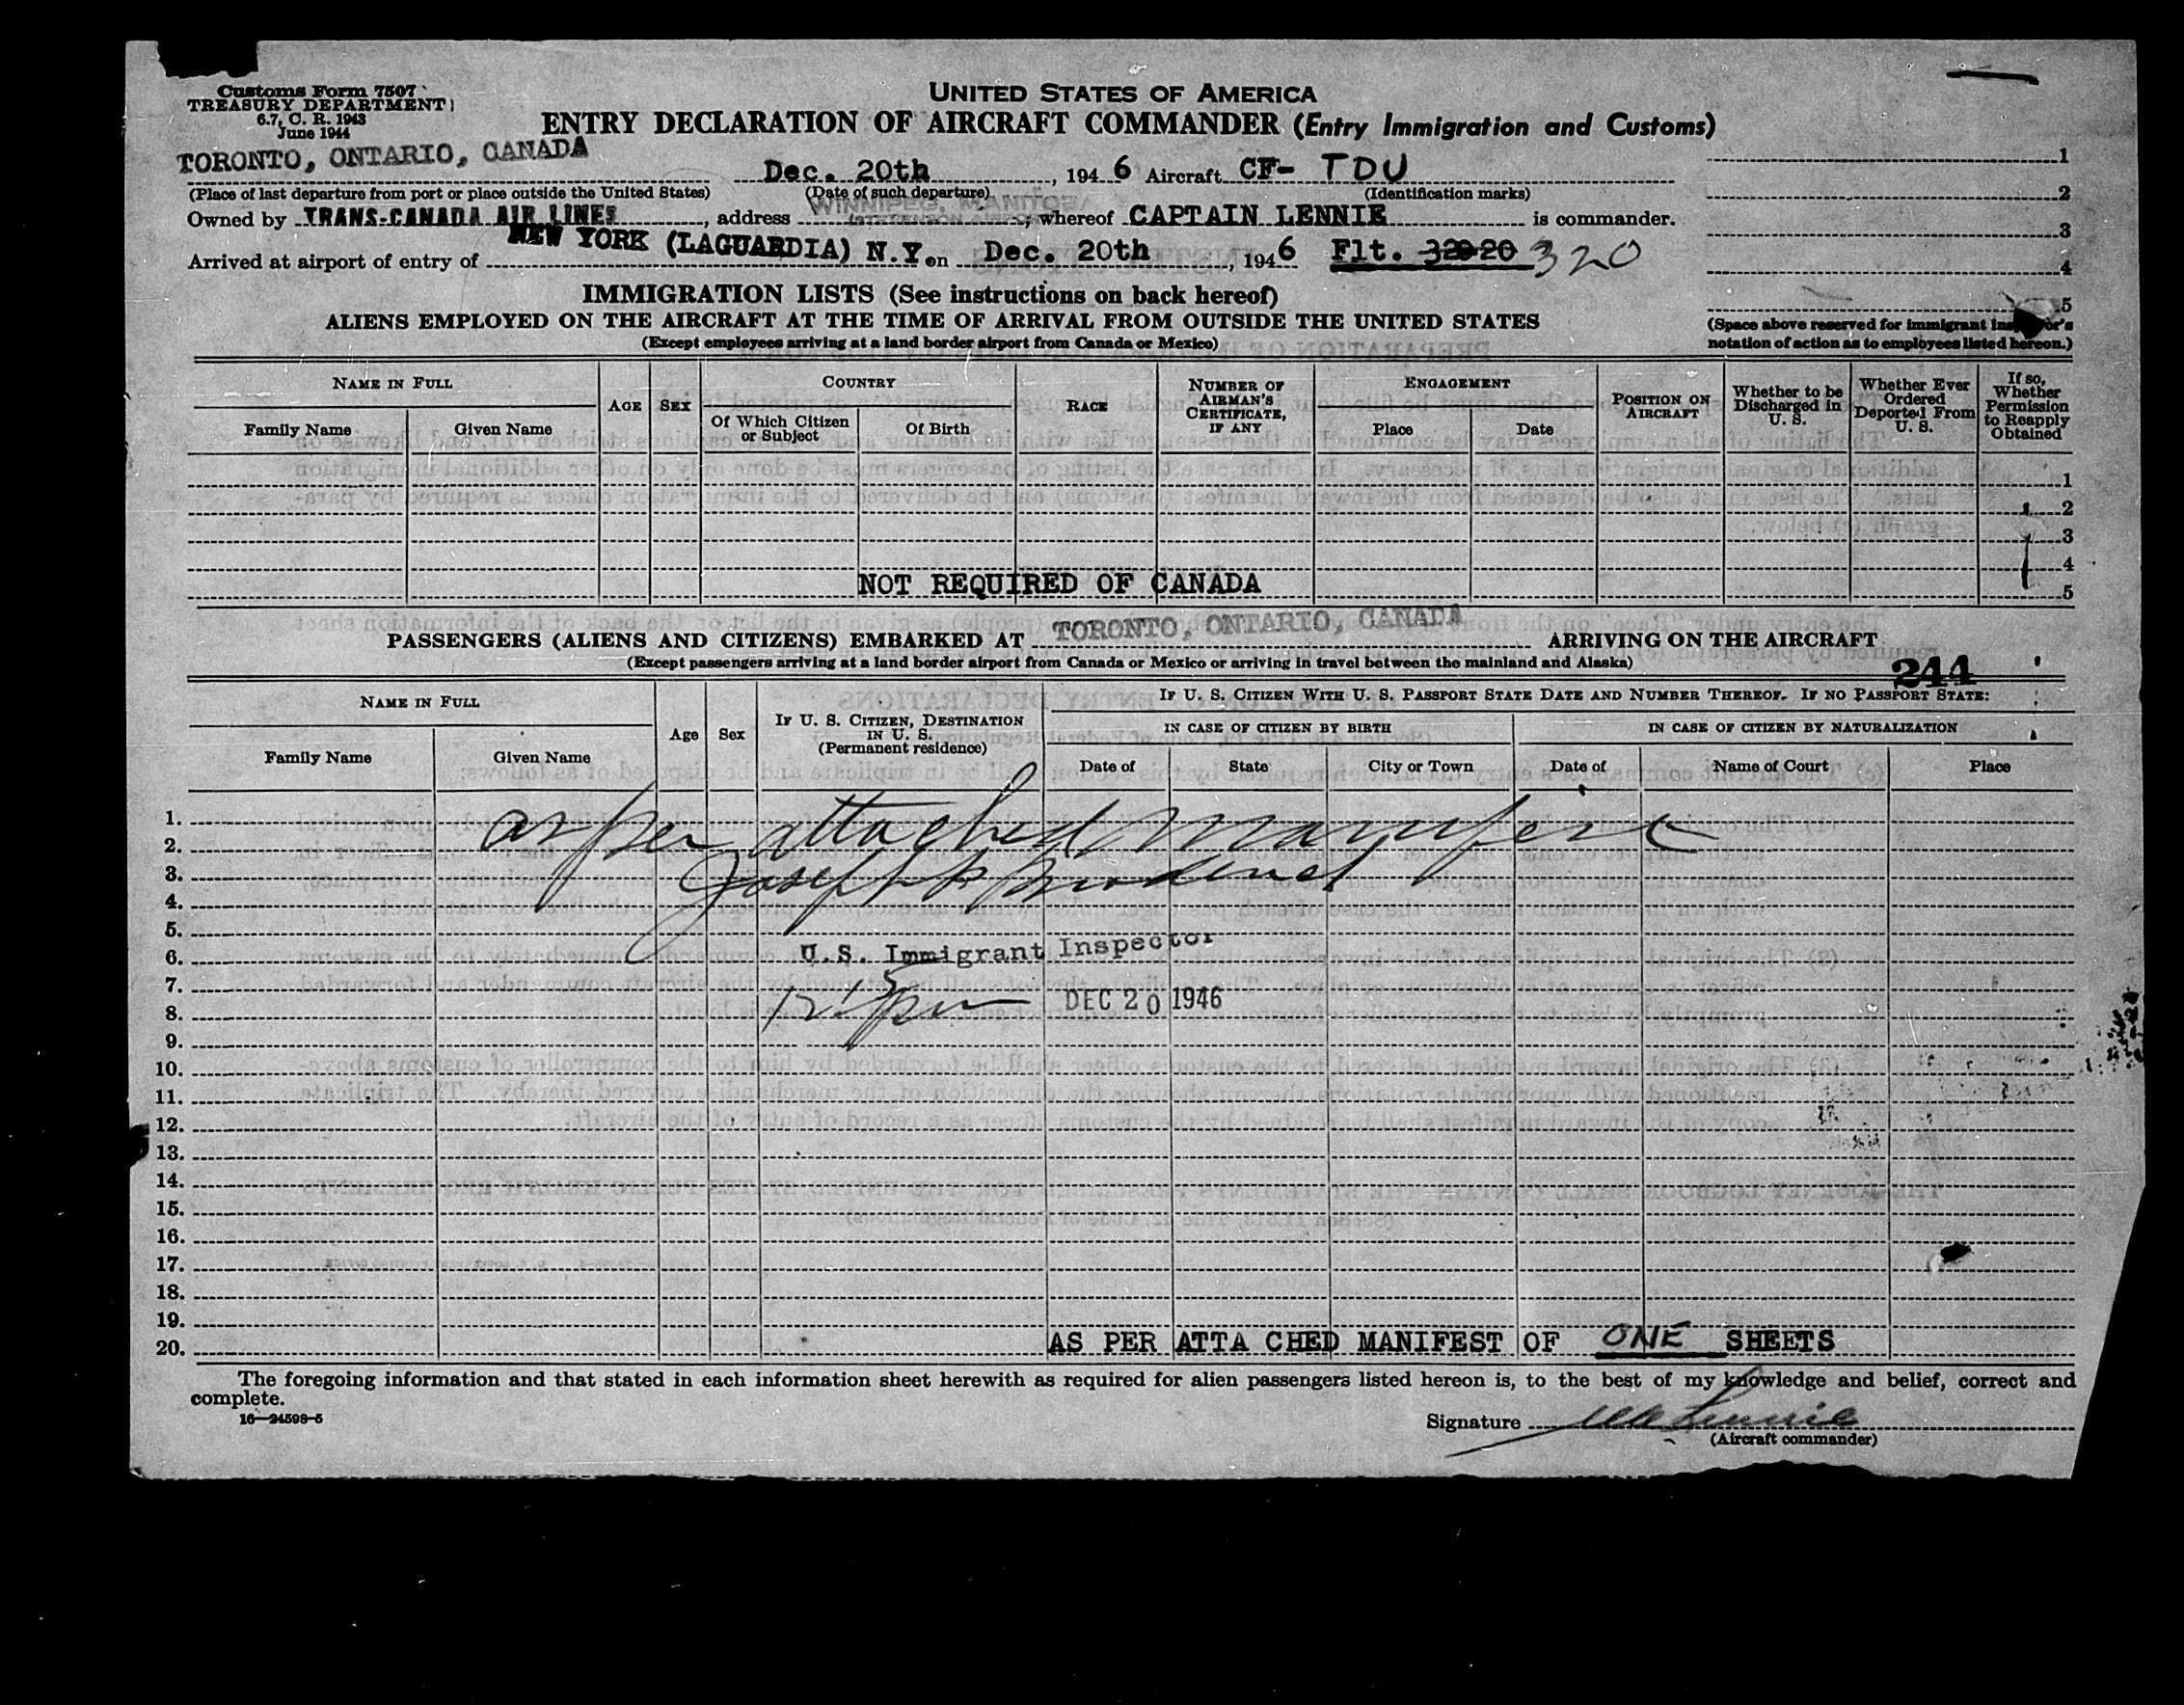 Customs Form 7507
TREASURY DEPARTMENT
6.7, C. R. 1943
June 1944
UNITED STATES OF AMERICA
ENTRY DECLARATION OF AIRCRAFT COMMANDER (Entry Immigration and Customs)
TORONTO, ONTARIO, CANADA Dec. 20th, 1946 Aircraft CF- TDU
(Place of last departure from port or place outside the United States) (Date of such departure) (Identification marks)
Owned by TRANS-CANADA AIR LINES, address WINNIPEG, MANITOBA; whereof CAPTAIN LENNIE is commander.
Arrived at airport of entry of NEW YORK (LAGUARDIA) N.Y. on Dec. 20th, 1946 Flt. 320
1
2
3
4
5
(Space above reserved for immigrant inspector's
notation of action as to employees listed hereon.)
IMMIGRATION LISTS (See instructions on back hereof)
ALIENS EMPLOYED ON THE AIRCRAFT AT THE TIME OF ARRIVAL FROM OUTSIDE THE UNITED STATES
(Except employees arriving at a land border airport from Canada or Mexico)
NAME IN FULL
Family Name
Given Name
AGE
SEX
COUNTRY
Of Which Citizen
or Subject
Of Birth
RACE
NUMBER OF
AIRMAN'S
CERTIFICATE,
IF ANY
ENGAGEMENT
Place
Date
POSITION ON
AIRCRAFT
Whether to be
Discharged in
U. S.
Whether Ever
Ordered
Deported From
U. S.
If so,
Whether
Permission
to Reapply
Obtained
1
2
3
4
5
NOT REQUIRED OF CANADA
PASSENGERS (ALIENS AND CITIZENS) EMBARKED AT TORONTO, ONTARIO, CANADA ARRIVING ON THE AIRCRAFT
(Except passengers arriving at a land border airport from Canada or Mexico or arriving in travel between the mainland and Alaska)
244
NAME IN FULL
Family Name
Given Name
Age
Sex
IF U. S. CITIZEN, DESTINATION
IN U. S.
(Permanent residence)
IF U. S. CITIZEN WITH U. S. PASSPORT STATE DATE AND NUMBER THEREOF. IF NO PASSPORT STATE:
IN CASE OF CITIZEN BY BIRTH
IN CASE OF CITIZEN BY NATURALIZATION
Date of
State
City or Town
Date of
Name of Court
Place
1.
2.
3.
4.
5.
6.
7.
8.
9.
10.
11.
12.
13.
14.
15.
16.
17.
18.
19.
20.
as per attached manifest
Joseph
U.S. Immigrant Inspector
12:15 pm DEC 20 1946
AS PER ATTA CHED MANIFEST OF ONE SHEETS
The foregoing information and that stated in each information sheet herewith as required for alien passengers listed hereon is, to the best of my knowledge and belief, correct and
complete.
16—24598-5
Signature Lennie
(Aircraft commander)